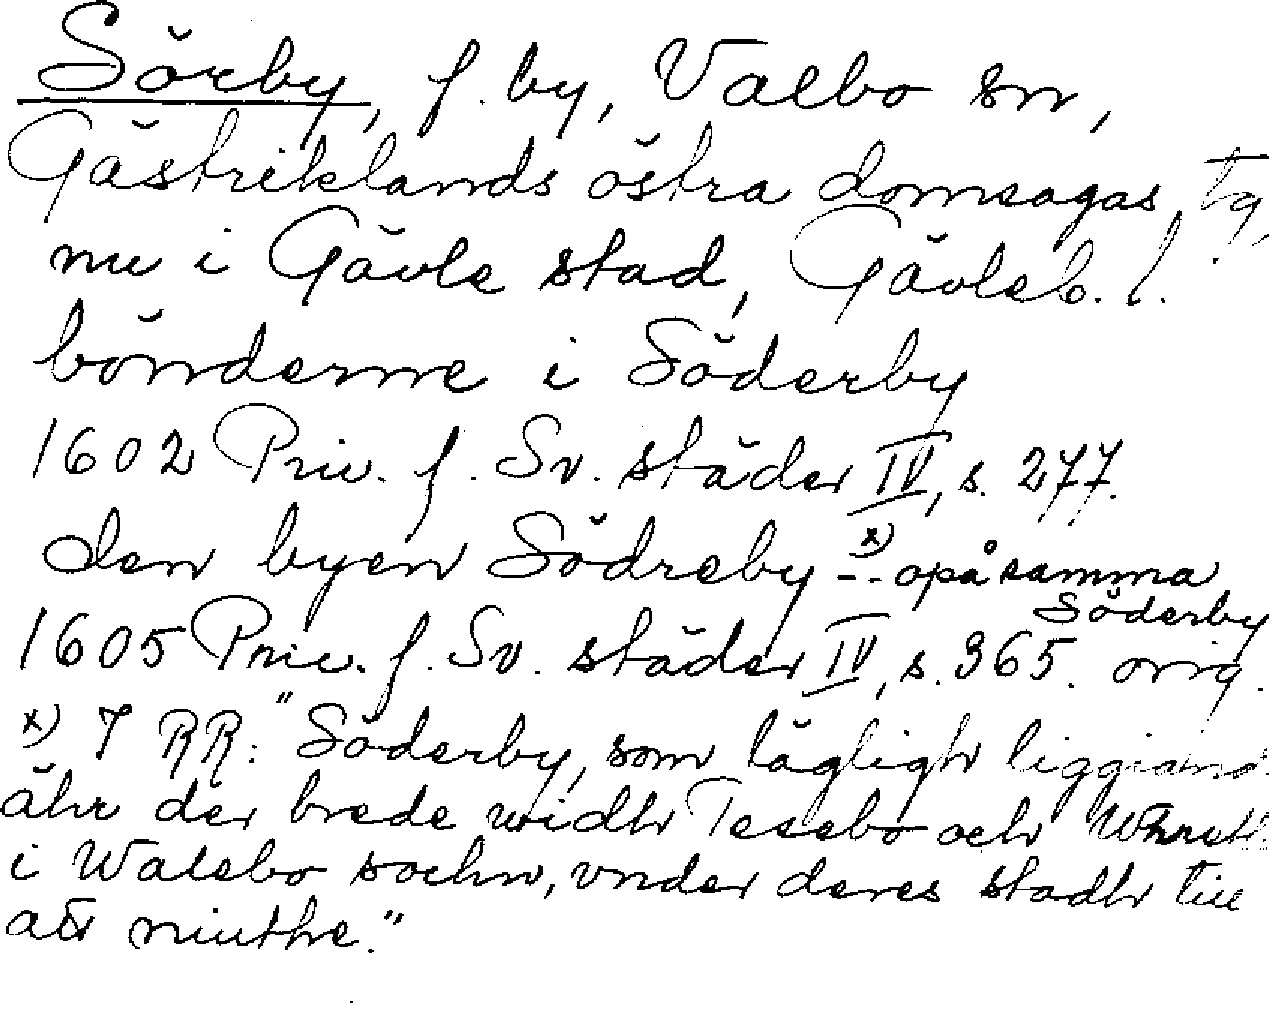 Sörby, f. by, Valbo sn,
Gästriklands östra domsagas tg,
nu i Gävle stad, Gävleb. l.
bönderne i Söderby
1602 Priv. f. Sv. städer IV, s. 277.
den byen Södreby -x)- opå samma
Söderby
1605 Priv. f. Sv. städer IV, s. 365. orig.
x) I RR: "Söderby, som lägligh liggiand
ähr der brede widh Tesebo och
i Walebo sochn, vnder deres stadh till
att niuthe."